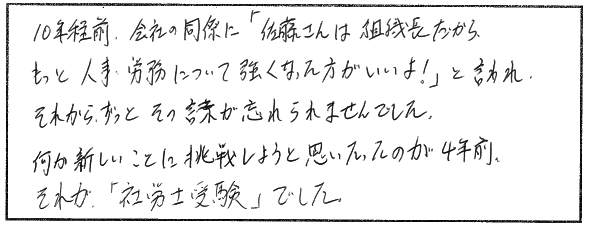 10年程前、会社の同僚に「佐藤さんは組織長だから
もっと人事・労務について強くなった方がいいよ!」と言われ、
それから、ずっとその言葉が忘れられませんでした。
何か新しいことに挑戦しようと思いたったのが4年前。
それが、「社労士受験」でした。